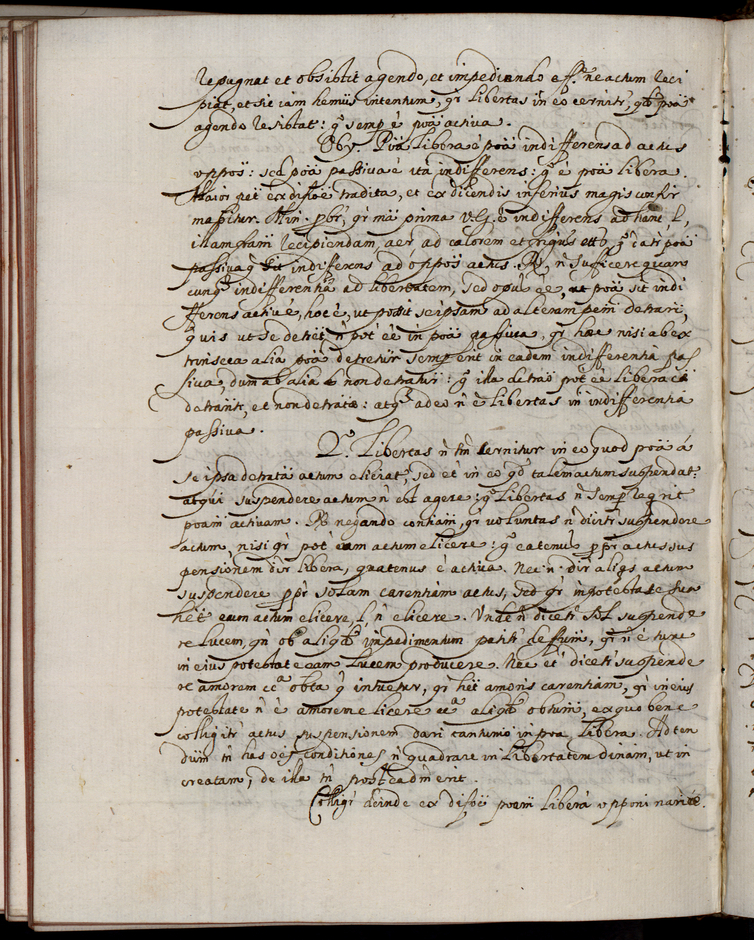 repugnat et obsistit agendo, et impediendo eff.ū ne actum reci
piat, et sic iam hemiis intentum, qr̄ libertas in eo cernitr̄, qđ poā
agendo resistat: gͦ semp ē poā activa.
Oby. Poā libera ē poā indifferens ad actus
oppoīs: sed poā passiva ē ita indifferens: gͦ ē poā libera.
Maior pet̄ ex diffōe tradita, et ex dicendis inferius magis confir
mabitur. Min. pbr̄, qr̄ mā prima v.g. ē indifferens ad hanc l,
illam formam recipiendam, aer ad calorem et frigus
passiva indifferens ad oppoīs actus. Rs. n̄ sufficere quam
cunq indifferentiā ad libertatem, sed opus ēe, ut poā sit indi
fferens activē, hoc ē, ut possit seipsam ad alteram ptem detrari,
quis ut se detret, n̄ pōt ēe in poā passiva, qr̄ haec nisi ab ex
trinseca alia poā detretur semp erit in eadem indifferentia pas
siva, dum ab alia non detratur: gͦ illa detraō pōt ēe libera
detranti, et non detratae: atq adeo n̄ ē libertas in indifferentia
passiva.
2.º Libertas n̄ tm̄ cernitur in eo quod poā a
se ipsa detrata actum eliciat, sed et in eo qđ talem actum suspendat:
atqui suspendere actum n̄ est agere: gͦ libertas n̄ semp reqrit
poam activam. Rs. negando contiam, qr̄ voluntas n̄ dicitr̄ suspendere
actum, nisi qr̄ pōt eam actum elicere: gͦ eatenus ppr̄ actus sus
pensionem dir̄ libera, quatenus ē activa. Nec n. dir̄ aliqs actum
suspendere ppr̄ solam carentiam actus, sed qr̄ in potestate sua
het eum actum elicere, l n̄ elicere. Unde n̄ dicetr̄ sol suspende
re lucem, qn̄ ob aliqđ impedimentum patitr̄ defium, qr̄ n̄ ē ture
in eius potestate eam lucem producere. Nec et dicetr̄ suspende
re amorem cͣ obtā q̄ intuetur, qr̄ het amoris carentiam, qr̄ in eius
potestate n̄ ē amorem elicere cͣ aliqđ obtum, ex quo bene
colligitr̄ actus suspensionem dari tantum in poa libera. Adten
dum tn̄ has oēs conditiones n̄ quadrare in libertatem divinam, ut in
creatam, de illa tn̄ postea dm̄ erit.
Colligr̄ deinde ex dictis poam liberā opponi